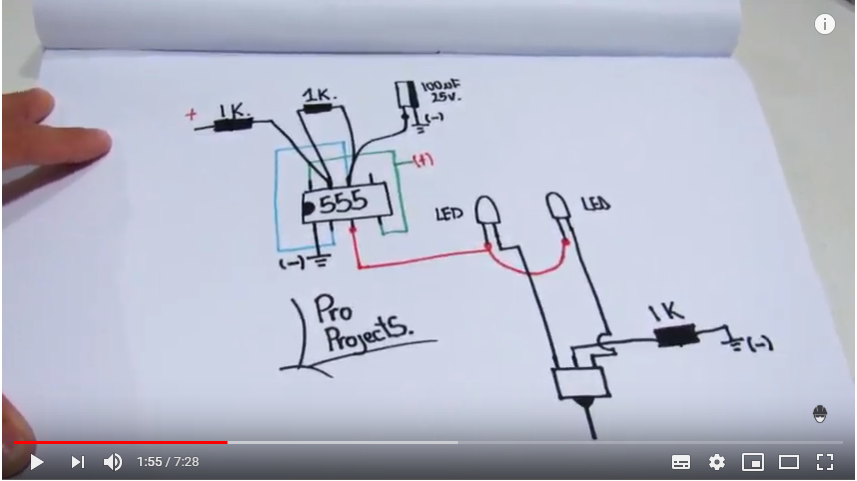 + 1K.
1K.
100uF
25V.
(-)
(+)
555
LED
LED
(-)
Pro
Projects.
1K
(-)
1:55 / 7:28